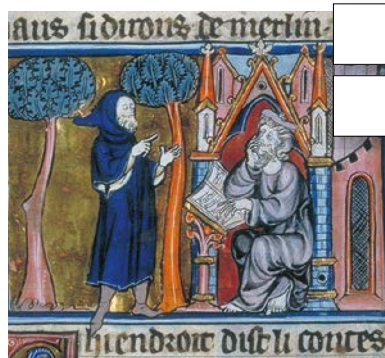 aus si dirons de merlin.
hiendroit dist li contes